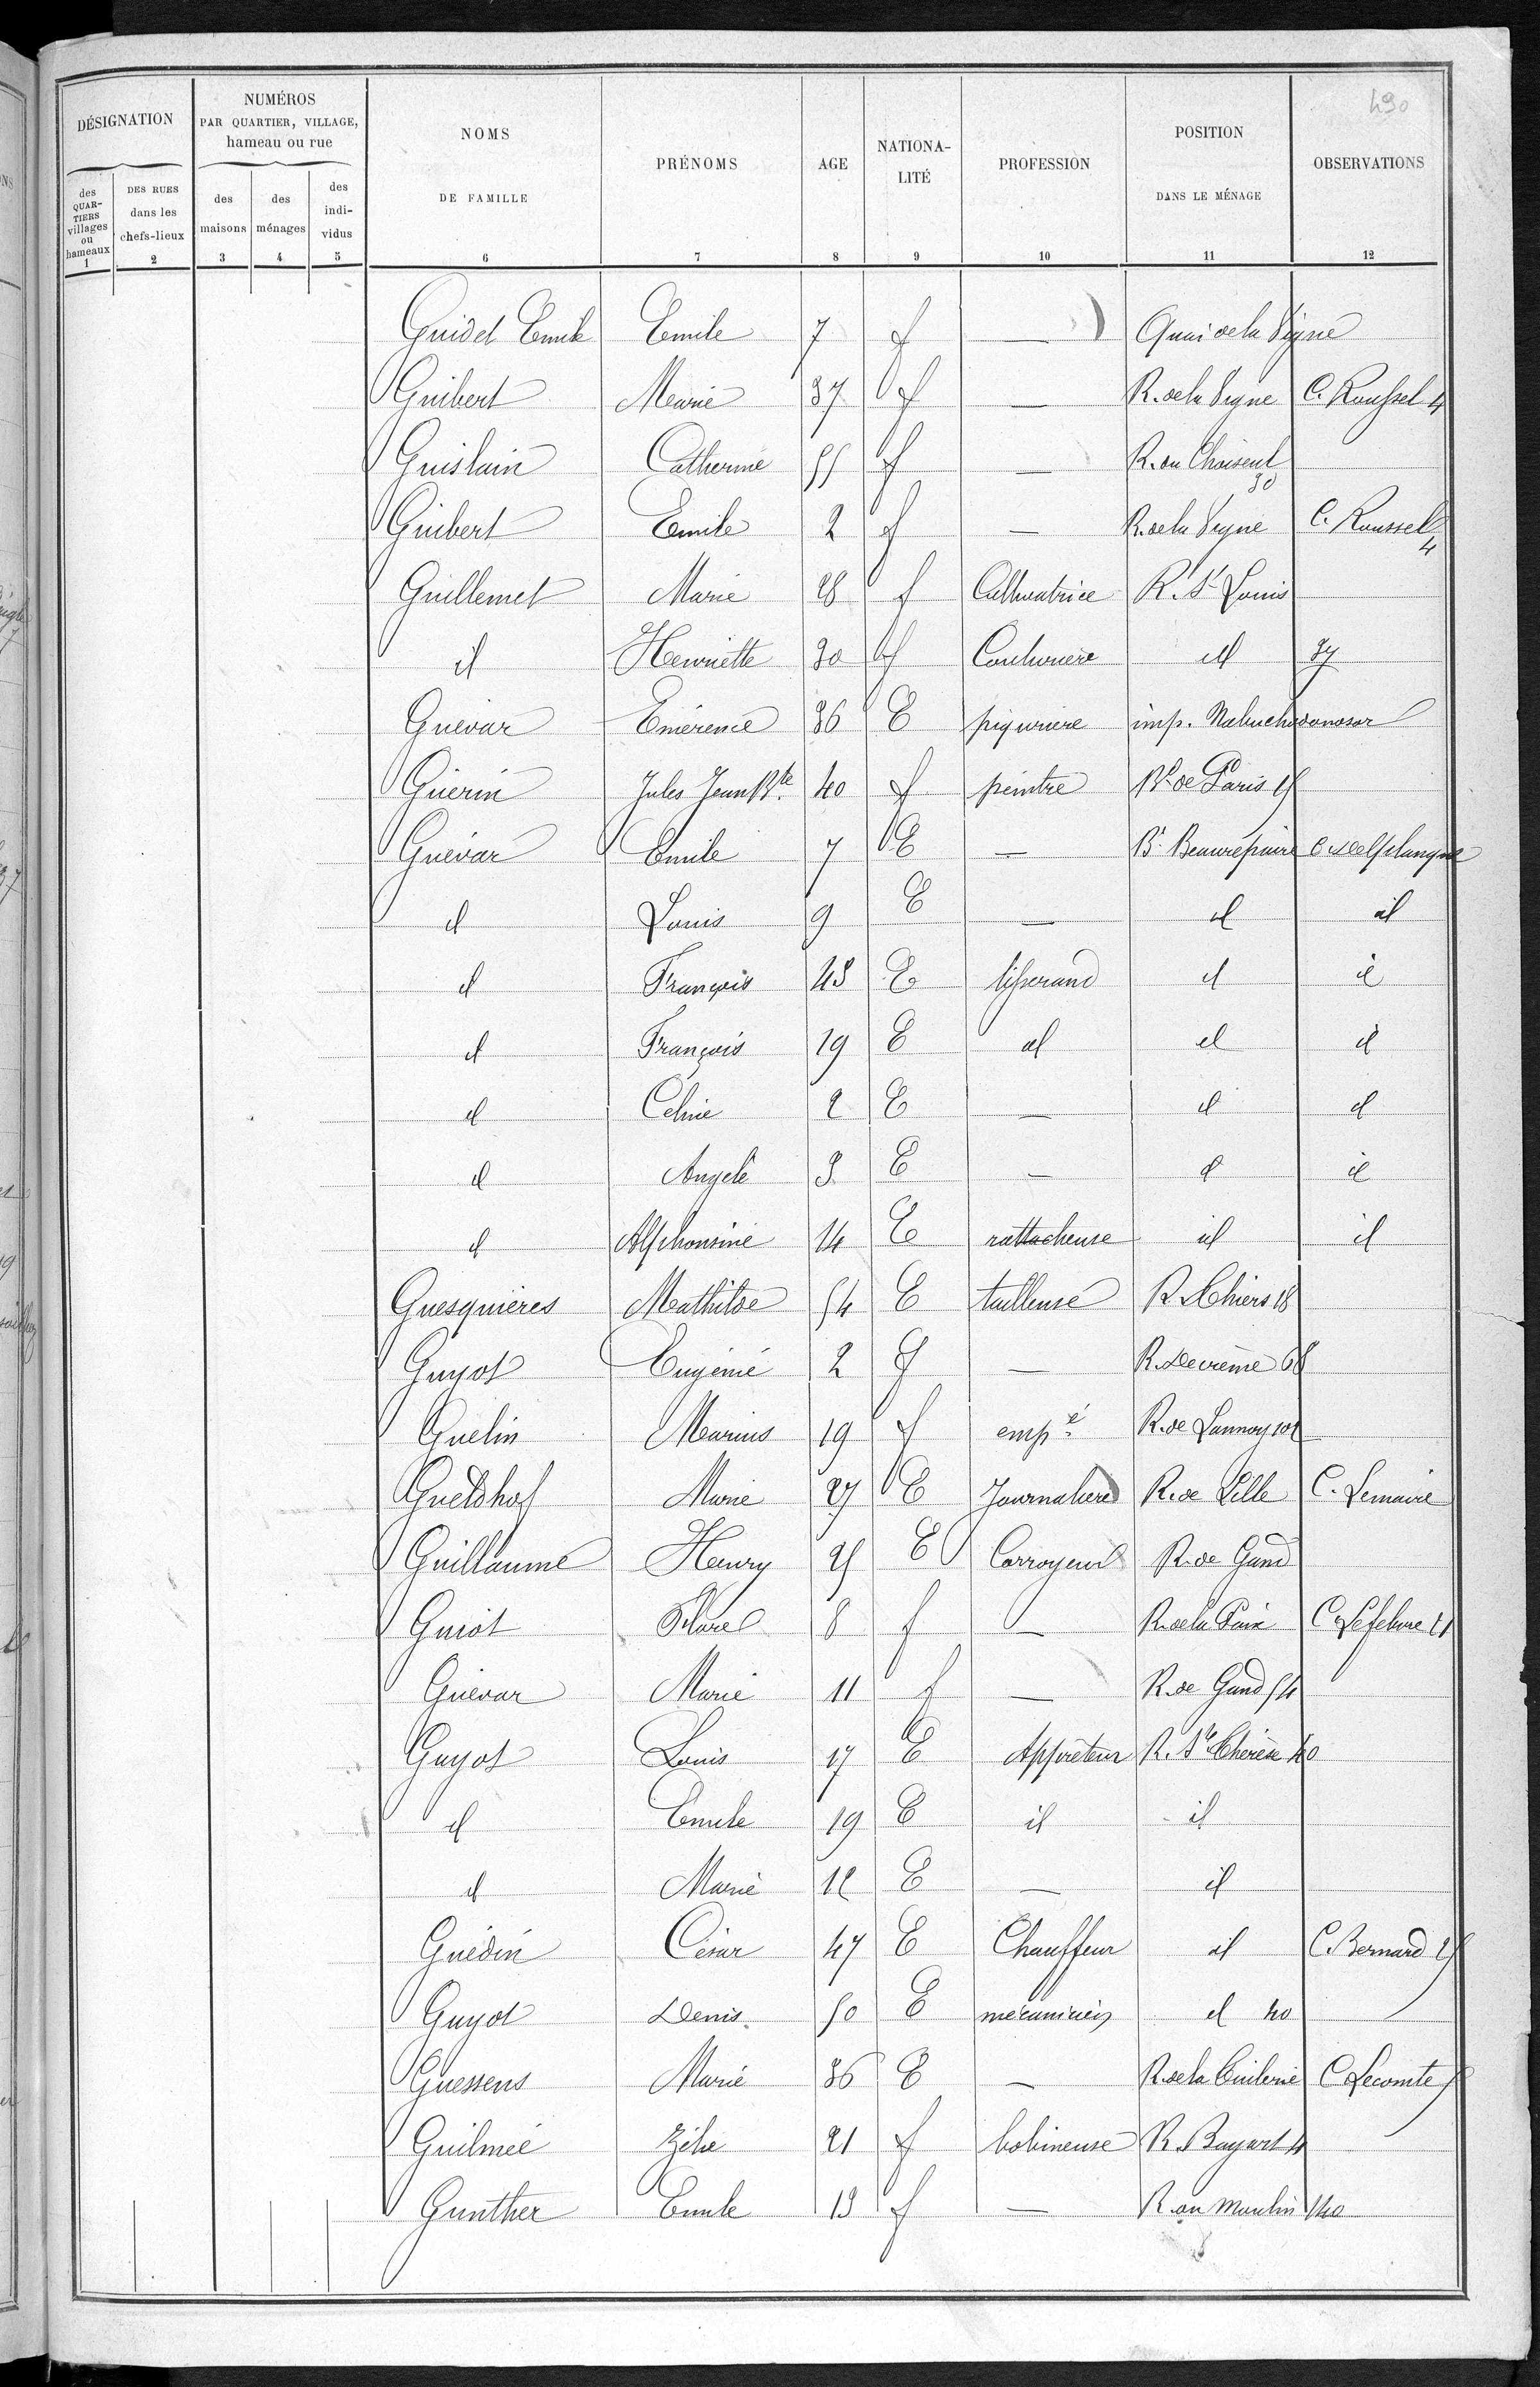 490
DÉSIGNATION
NUMÉROS PAR QUARTIER, VILLAGE, hameau ou rue
NOMS DE FAMILLE
PRÉNOMS
AGE
NATIONA-LITÉ
PROFESSION
POSITION DANS LE MÉNAGE
OBSERVATIONS
des QUAR-TIERS villages ou hameaux
DES RUES dans les chefs-lieux
des maisons
des ménages
des indi-vidus
1 2 3 4 5 6 7 8 9 10 11 12
Guidet Emile Emile 7 f — Quai de la Vigne
Guibert Marie 37 f — R. de la Vigne C. Roussel 4
Guislain Catherine 55 f — R. du Choiseul 30
Guibert Emile 2 f — R. de la Vigne C. Roussel 4
Guillemet Marie 28 f Cultivatrice R. St Louis
id Henriette 30 f Couturière id 37
Guévar Emérence 36 E piqurière imp. Nabuchodonosor
Guérin Jules Jean Bte 40 f peintre Bd de Paris 15
Guévar Emile 7 E — Bd Beaurepaire C. Delplanque
id Louis 9 E — id id
id François 43 E tisserand id id
id François 19 E id id id
id Celine 2 E — id id
id Angèle 3 E — id id
id Alphonsine 14 E rattacheuse id id
Guesquières Mathilde 54 E tailleuse R. Thiers 18
Guyot Eugénie 2 f — R. Decrème 68
Guelin Marius 19 f empé R. de Lannoy 101
Gueldhof Marie 27 E Journalière R. de Lille C. Lemaire
Guillaume Henry 25 E Corroyeur R. de Gand
Guiot 8 f — R. de la Paix C. Lefebvre 21
Guévar Marie 11 f — R. de Gand 54
Guyot Louis 17 E Apprêteur R. Ste Thérèse 40
id Emile 19 E id id
id Marie 12 E — id
Guédin César 47 E Chauffeur id C. Bernard 25
Guyot Denis 50 E mécanicien id 40
Guessens Marie 36 E — R. de la Tuilerie C. Lecomte 5
Guilmée Zélie 21 f bobineuse R. Bayart 4
Gunther Emile 13 f — R. du Moulin 140